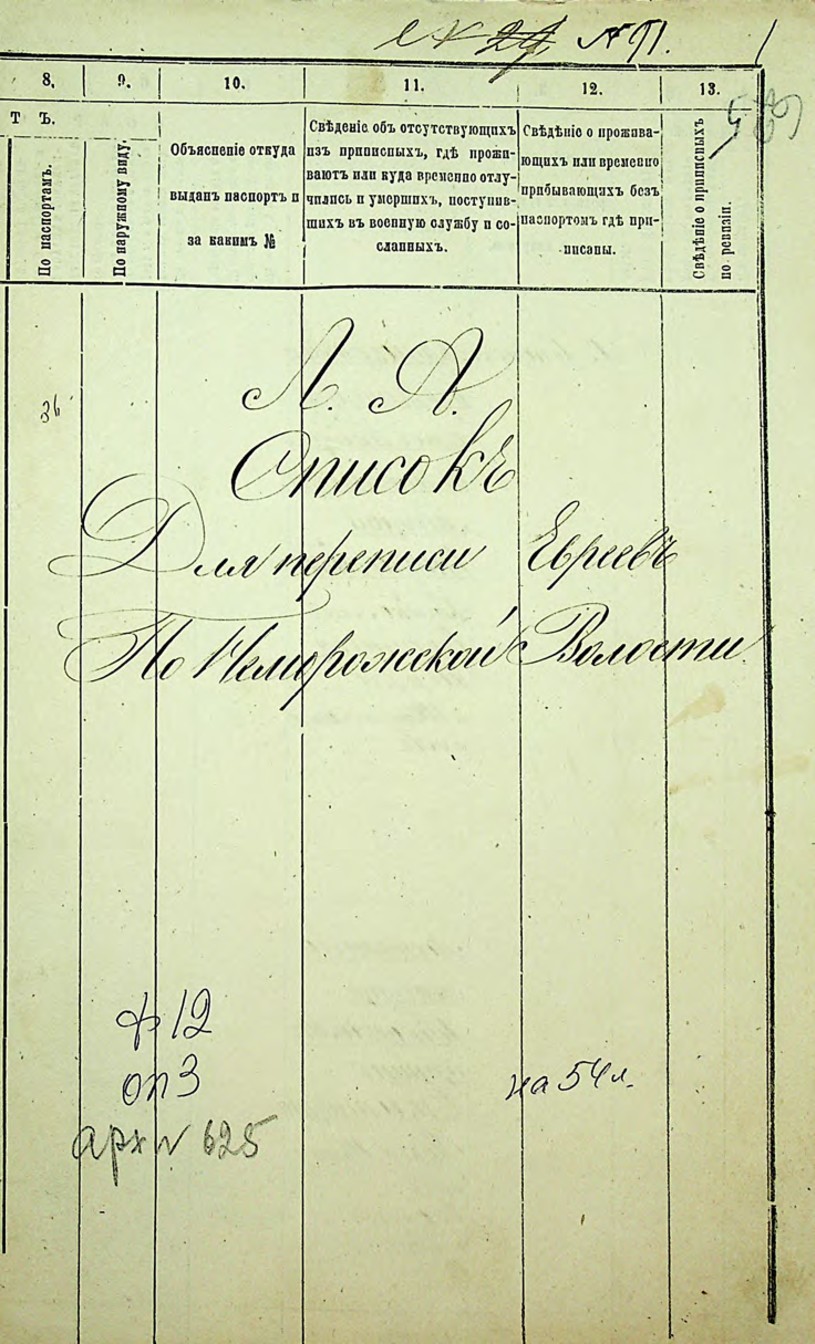 8. 9. 10. 11. 12. 13.
Т Ъ.
По паспортамъ.
По наружному виду.
Объясненіе откуда
выданъ паспортъ и
за какимъ №
Свѣденіе объ отсутствующихъ
изъ приписныхъ, гдѣ прожи-
ваютъ или куда временно отлу-
чились и умершихъ, поступив-
шихъ въ военную службу и со-
сланныхъ.
Свѣдѣніе о прожива-
ющихъ или временно
прибывающихъ безъ
паспортомъ гдѣ при-
писаны.
Свѣдѣніе о приписныхъ
по ревизіи.
Л. А.
Списокъ
Для переписи Евреевъ
По Неморожской Волости
ф 12
оп 3
на 54 л.
арх № 625